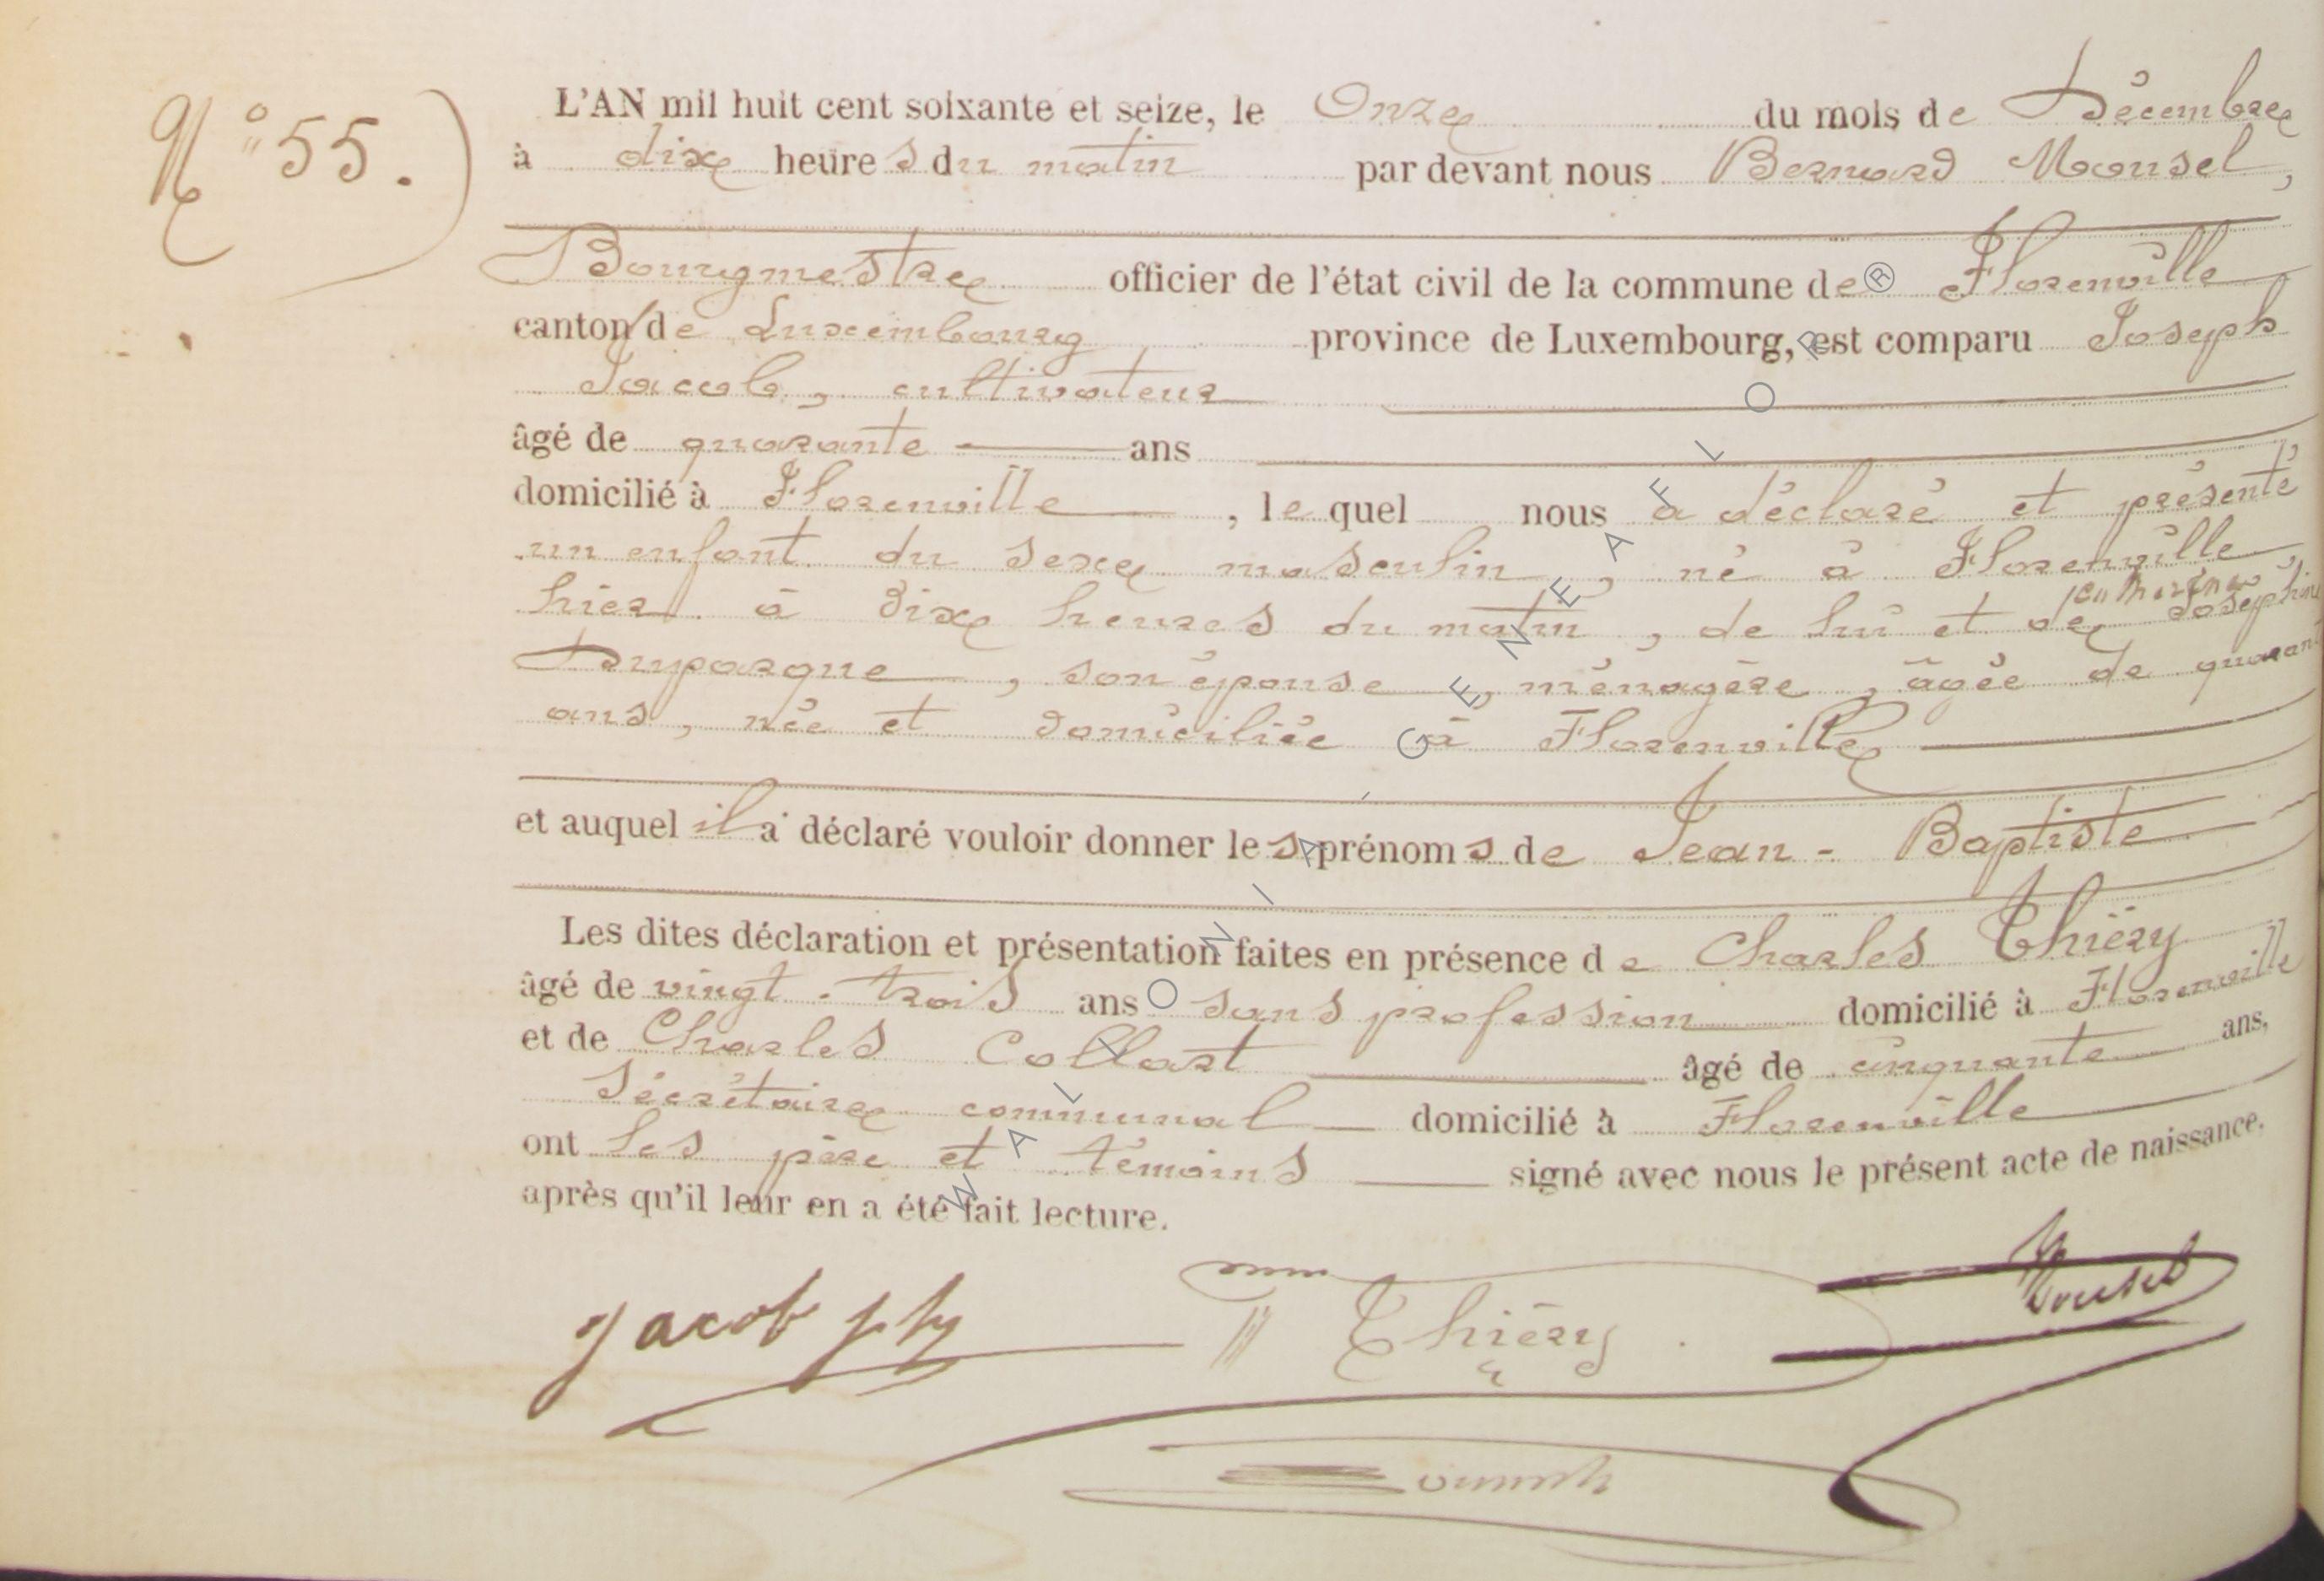 N° 55.)
L'AN mil huit cent soixante et seize, le Onze du mois de Décembre
à dix heures du matin par devant nous Bernard Mousel,
Bourgmestre officier de l'état civil de la commune de Florenville
canton de Luxembourg province de Luxembourg, est comparu Joseph
Jacob, cultivateur
âgé de quarante ans
domicilié à Florenville, le quel nous a déclaré et présenté
un enfant du sexe masculin, né à Florenville,
hier à dix heures du matin, de lui et de Catherine Joséphine
Duparque, son épouse, ménagère, âgée de quarante
ans, née et domiciliée à Florenville
et auquel il a déclaré vouloir donner les prénoms de Jean-Baptiste
Les dites déclaration et présentation faites en présence de Charles Thiéry
âgé de vingt-trois ans sans profession domicilié à Florenville
et de Charles Collart âgé de cinquante ans,
Sécrétaire communal domicilié à Florenville
ont les père et témoins signé avec nous le présent acte de naissance,
après qu'il leur en a été fait lecture.
Jacob jph Thiéry Mousel
WALLONIA GENEAFLOR ®